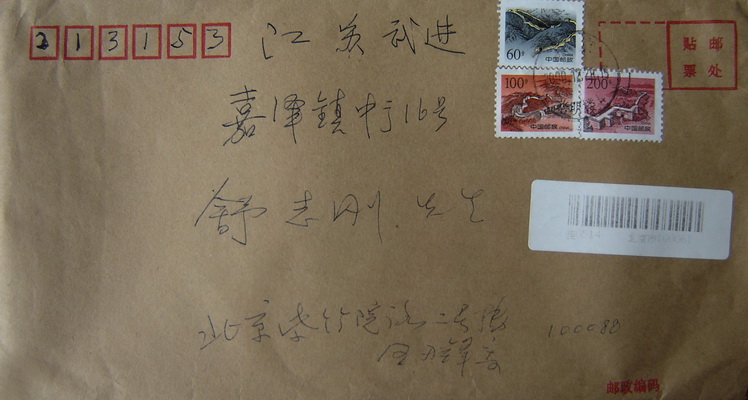 213153
江苏武进
60分
中国邮政
100分
中国邮政
200分
中国邮政
贴邮
票处
嘉泽镇中于16号
舒志刚先生
北京紫竹院路二号院
100088
邮政编码